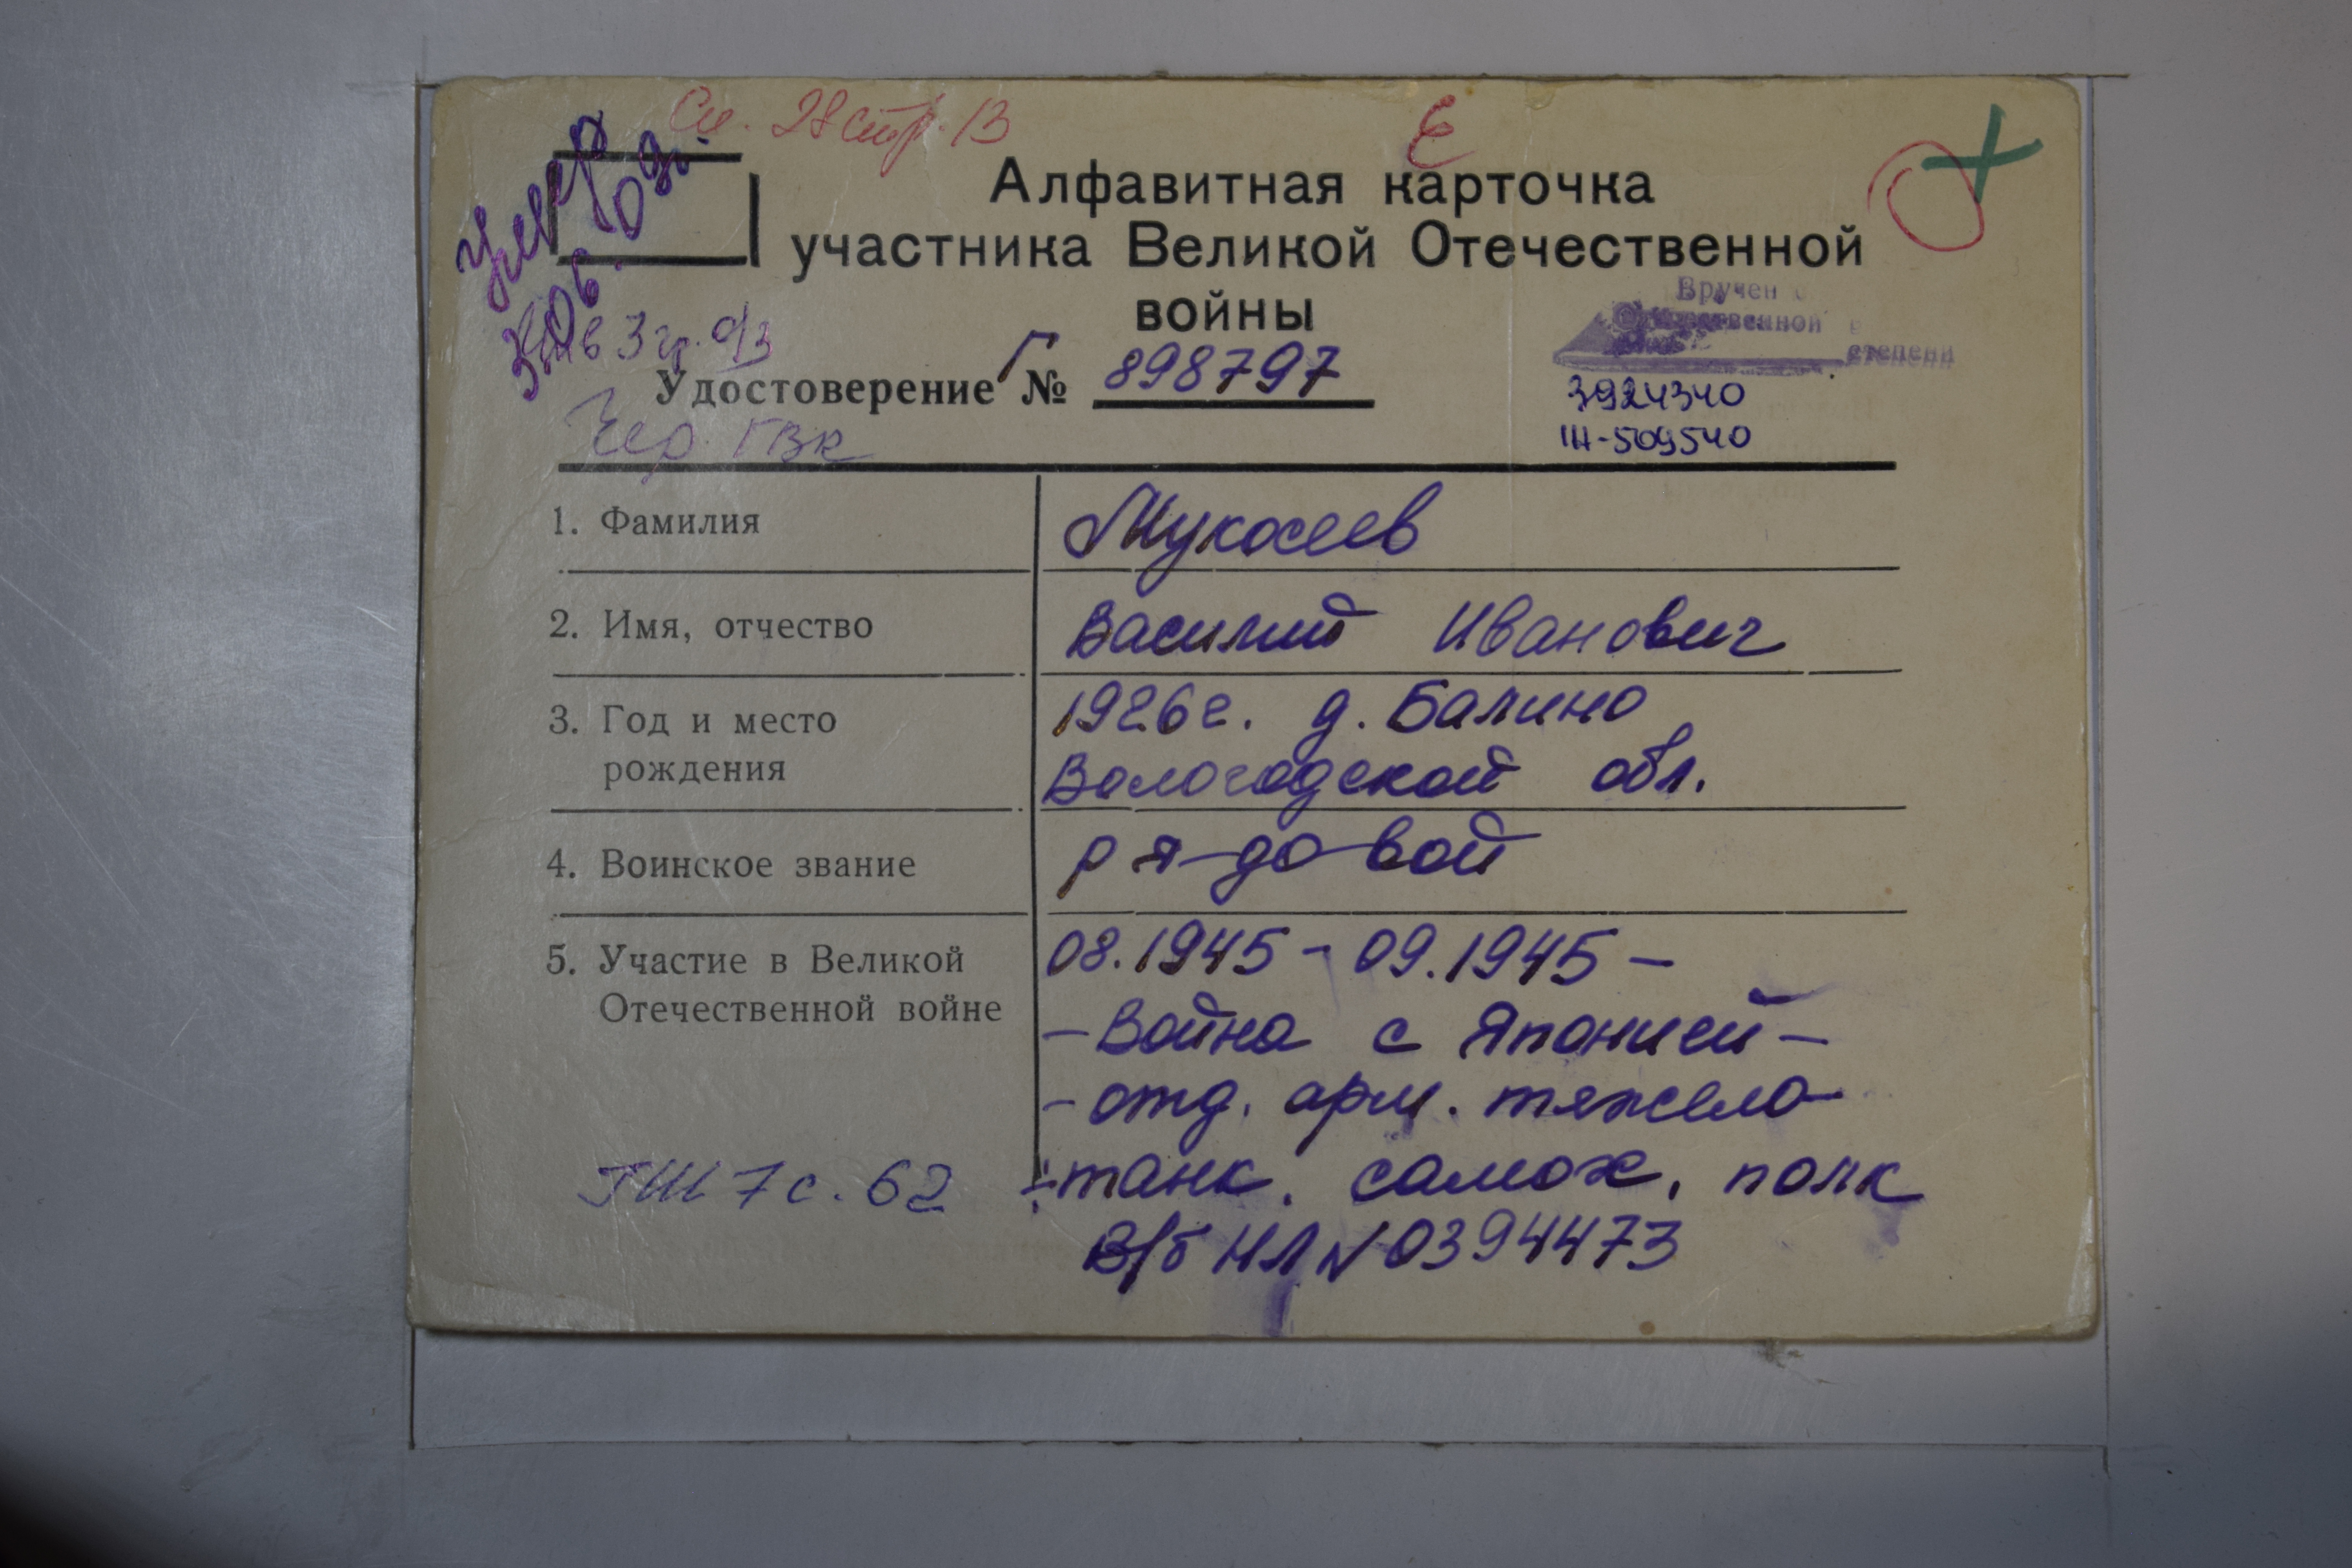 См. 28 стр. 13
Умер
30.06.03г.
Инв 3 гр. о/з
Чер. ГВК
Алфавитная карточка
участника Великой Отечественной
войны
Удостоверение Г № 898797
Вручен
Отечественной в
степени
3924340
1Н-509540
1. Фамилия Мукосеев
2. Имя, отчество Василий Иванович
3. Год и место 1926г. д. Балино
рождения Вологодской обл.
4. Воинское звание рядовой
5. Участие в Великой 08.1945 - 09.1945 -
Отечественной войне - Война с Японией -
- отд. арм. тяжело-
- танк. самох. полк
ГШ 7 с. 62
В/б НЛ № 0394473